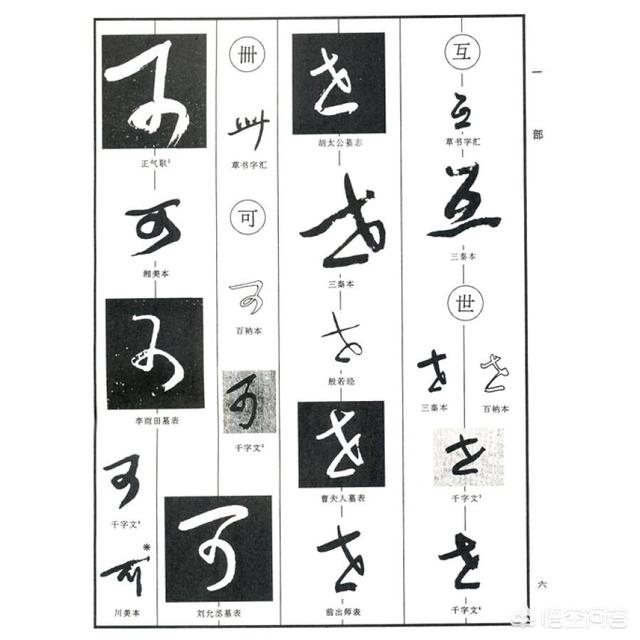 一部
互
互
草书字汇
互
三秦本
世
世
三秦本
世
百衲本
世
千字文³
世
千字文⁴
世
胡太公墓志
世
三秦本
世
般若经
世
曹夫人墓表
世
前出师表
冊
冊
草书字汇
可
可
百衲本
可
千字文³
可
刘允丞墓表
可
正气歌¹
可
湘美本
可
李雨田墓表
可
千字文⁴
※
可
川美本
六
悟空问答